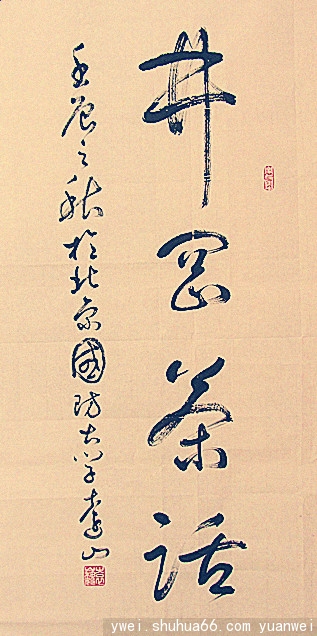 井冈茶话
壬辰之秋於北京國防大学袁山
ywei.shuhua66.com yuanwei